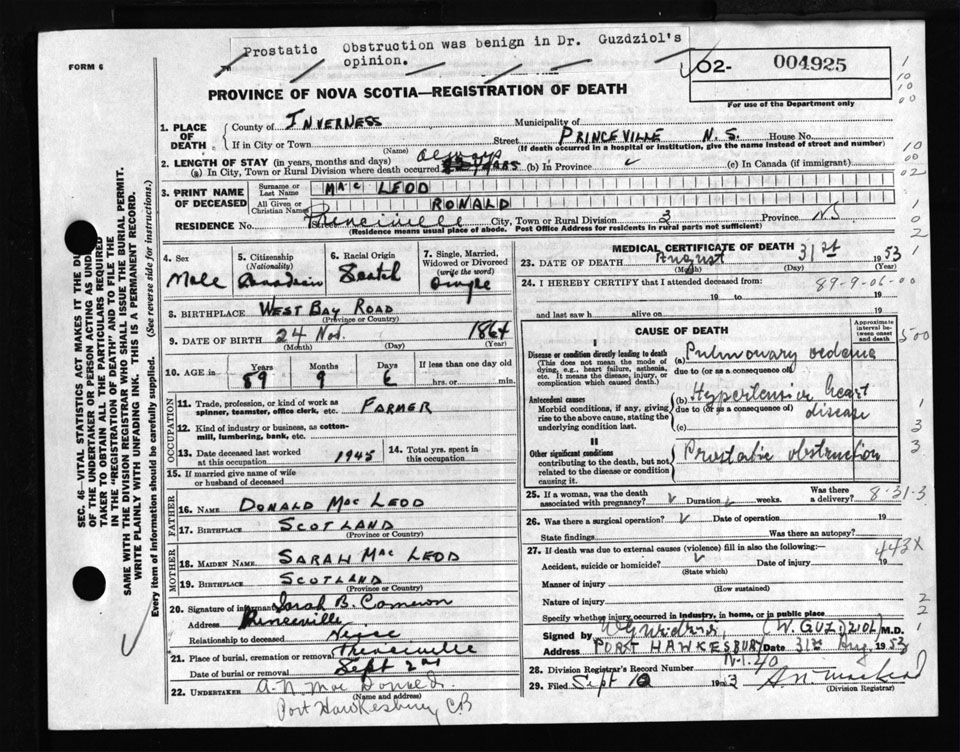 Prostatic Obstruction was benign in Dr. Guzdziol's
opinion.
FORM 6
O2- 004925
For use of the Department only
PROVINCE OF NOVA SCOTIA—REGISTRATION OF DEATH
1. PLACE OF DEATH
County of INVERNESS Municipality of
If in City or Town Street PRINCEVILLE N.S. House No.
(Name) (If death occurred in a hospital or institution, give the name instead of street and number)
2. LENGTH OF STAY (in years, months and days)
(a) In City, Town or Rural Division where death occurred YEARS (b) In Province (c) In Canada (if immigrant)
3. PRINT NAME OF DECEASED
Surname or Last Name MAC LEOD
All Given or Christian Names RONALD
RESIDENCE No. Street Princeville City, Town or Rural Division 3 Province N.S
(Residence means usual place of abode. Post Office Address for residents in rural parts not sufficient)
4. Sex Male
5. Citizenship (Nationality) Canadian
6. Racial Origin Scotch
7. Single, Married, Widowed or Divorced (write the word) Single
8. BIRTHPLACE WEST BAY ROAD
(Province or Country)
9. DATE OF BIRTH 24 Nov. 1864
(Month) (Day) (Year)
10. AGE in Years Months Days If less than one day
89 9 6 hrs. or min.
OCCUPATION
11. Trade, profession, or kind of work as spinner, teamster, office clerk, etc. FARMER
12. Kind of industry or business, as cotton-mill, lumbering, bank, etc.
13. Date deceased last worked at this occupation 1945
14. Total yrs. spent in this occupation
15. If married give name of wife or husband of deceased
FATHER
16. NAME DONALD MAC LEOD
17. BIRTHPLACE SCOTLAND
(Province or Country)
MOTHER
18. MAIDEN NAME SARAH MAC LEOD
19. BIRTHPLACE SCOTLAND
(Province or Country)
20. Signature of informant Sarah B. Cameron
Address Princeville
Relationship to deceased Neice
21. Place of burial, cremation or removal Princeville
Date of burial or removal Sept 2nd
22. UNDERTAKER A.N. MacDonald
(Name and address)
Port Hawkesbury C.B
MEDICAL CERTIFICATE OF DEATH
23. DATE OF DEATH August 31st 1953
(Month) (Day) (Year)
24. I HEREBY CERTIFY that I attended deceased from: 89-9-06-00
19 to 19
and last saw h alive on 19
CAUSE OF DEATH
Approximate interval between onset and death
I
Disease or condition directly leading to death
(This does not mean the mode of dying, e.g., heart failure, asthenia, etc. It means the disease, injury, or complication which caused death.)
(a) Pulmonary oedema
due to (or as a consequence of)
Antecedent causes
Morbid conditions, if any, giving rise to the above cause, stating the underlying condition last.
(b) Hypertensive heart
due to (or as a consequence of) disease
(c)
II
Other significant conditions
contributing to the death, but not related to the disease or condition causing it.
Prostatic obstruction
25. If a woman, was the death associated with pregnancy? Duration weeks. Was there a delivery? 8-31-3
26. Was there a surgical operation? Date of operation 19
State findings Was there an autopsy?
27. If death was due to external causes (violence) fill in also the following:— 443X
Accident, suicide or homicide? Date of injury 19
(State which)
Manner of injury
(How sustained)
Nature of injury
Specify whether injury occurred in industry, in home, or in public place
Signed by (W. GUZDZIOL) M.D.
Address PORT HAWKESBURY Date 31st Aug. 1953
28. Division Registrar's Record Number N-1. 40
29. Filed Sept 1953
(Division Registrar)
SEC. 46—VITAL STATISTICS ACT MAKES IT THE DU
OF THE UNDERTAKER OR PERSON ACTING AS UND
TAKER TO OBTAIN ALL THE PARTICULARS REQUIRED
IN THE "REGISTRATION OF DEATH" AND TO FILE THE
SAME WITH THE DIVISION REGISTRAR WHO SHALL ISSUE THE BURIAL PERMIT.
WRITE PLAINLY WITH UNFADING INK. THIS IS A PERMANENT RECORD.
Every item of information should be carefully supplied. (See reverse side for instructions.)